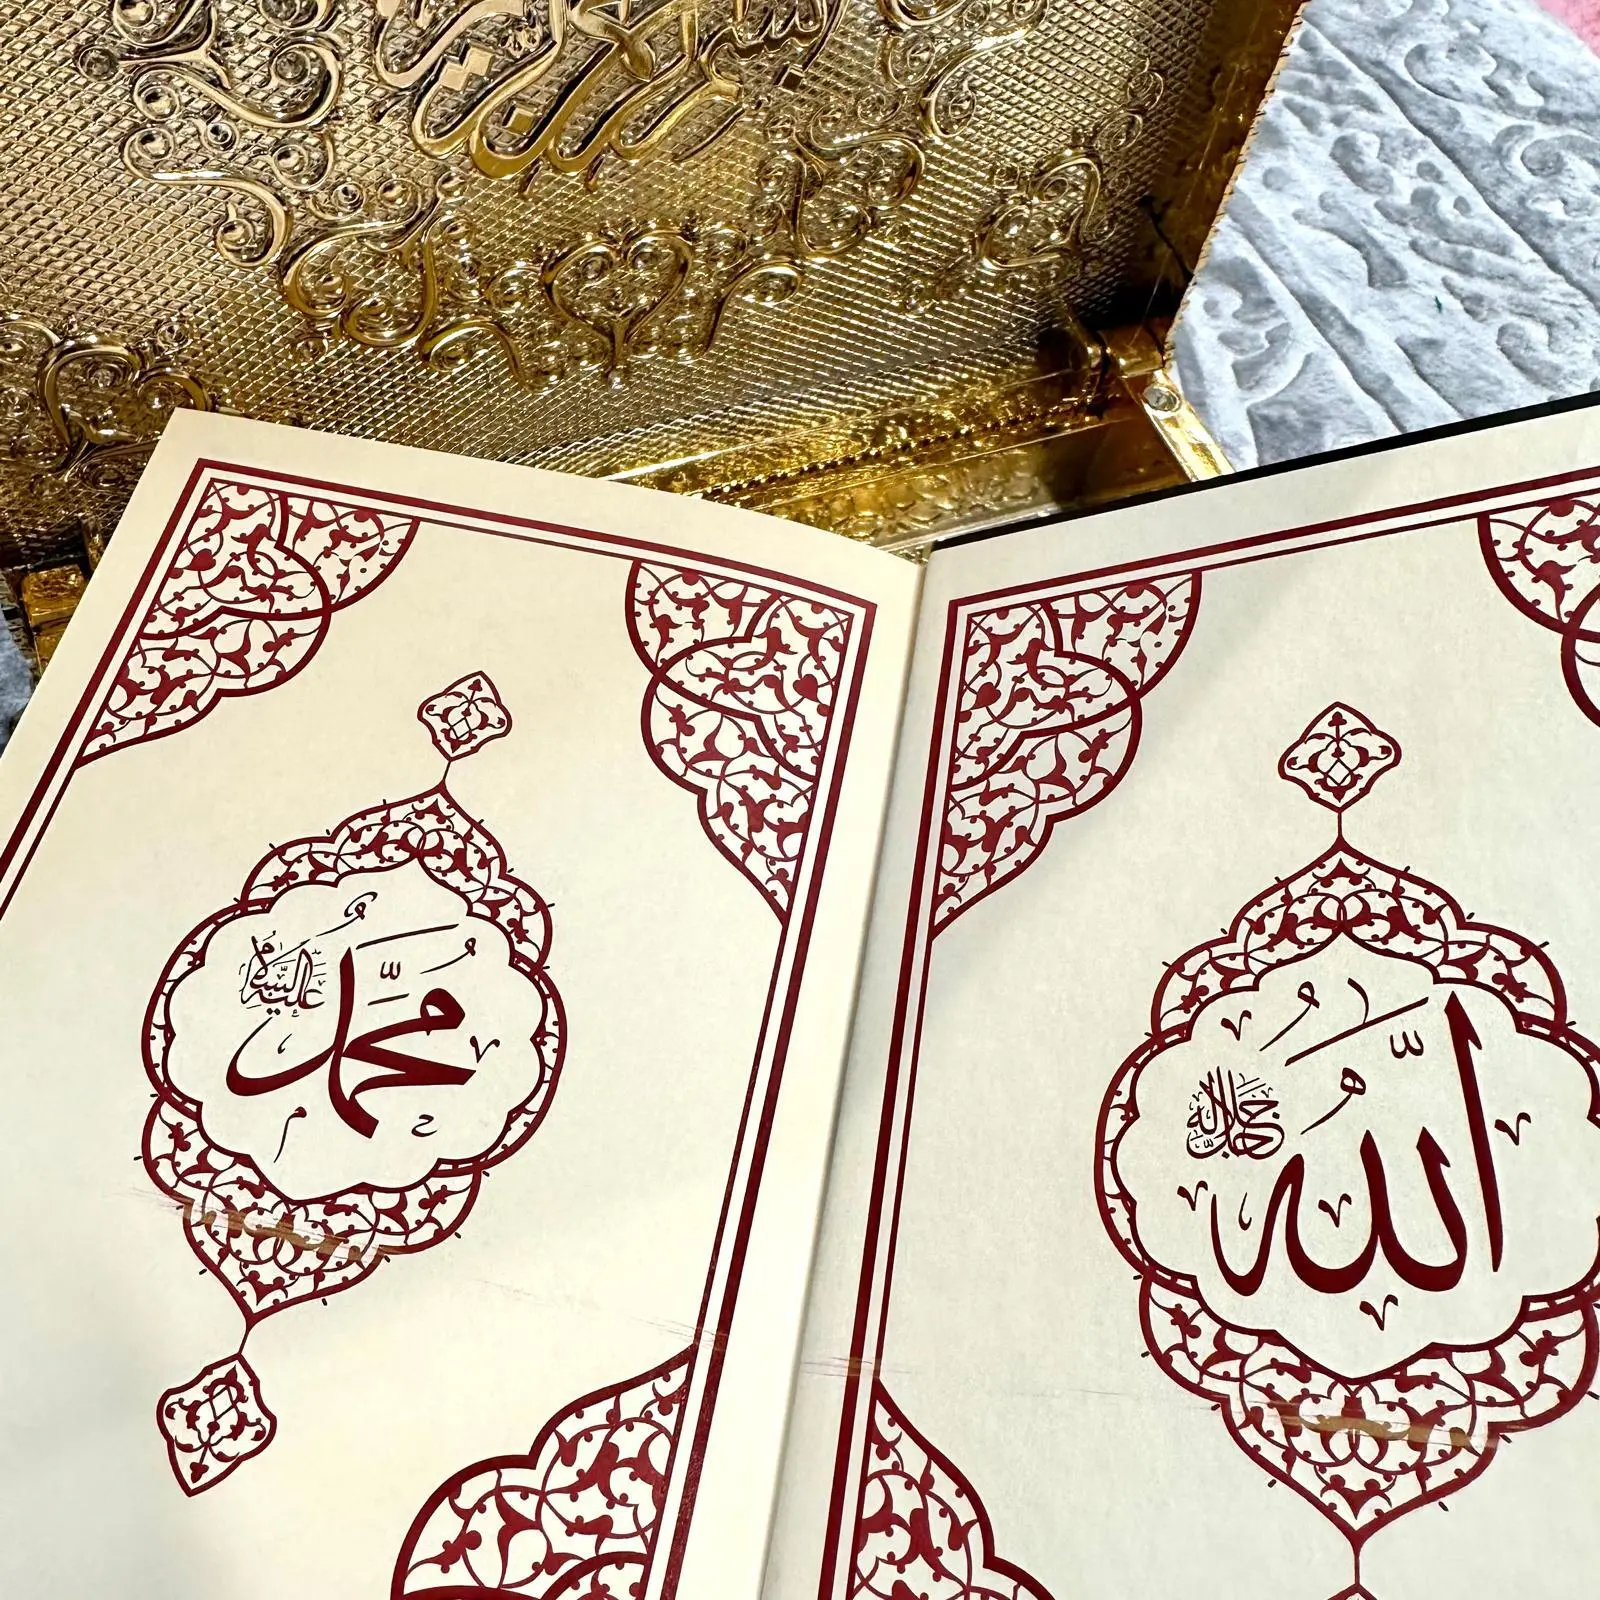 بسم الله الرحمن الرحيم
الله
جل جلاله
محمد
عليه السلام